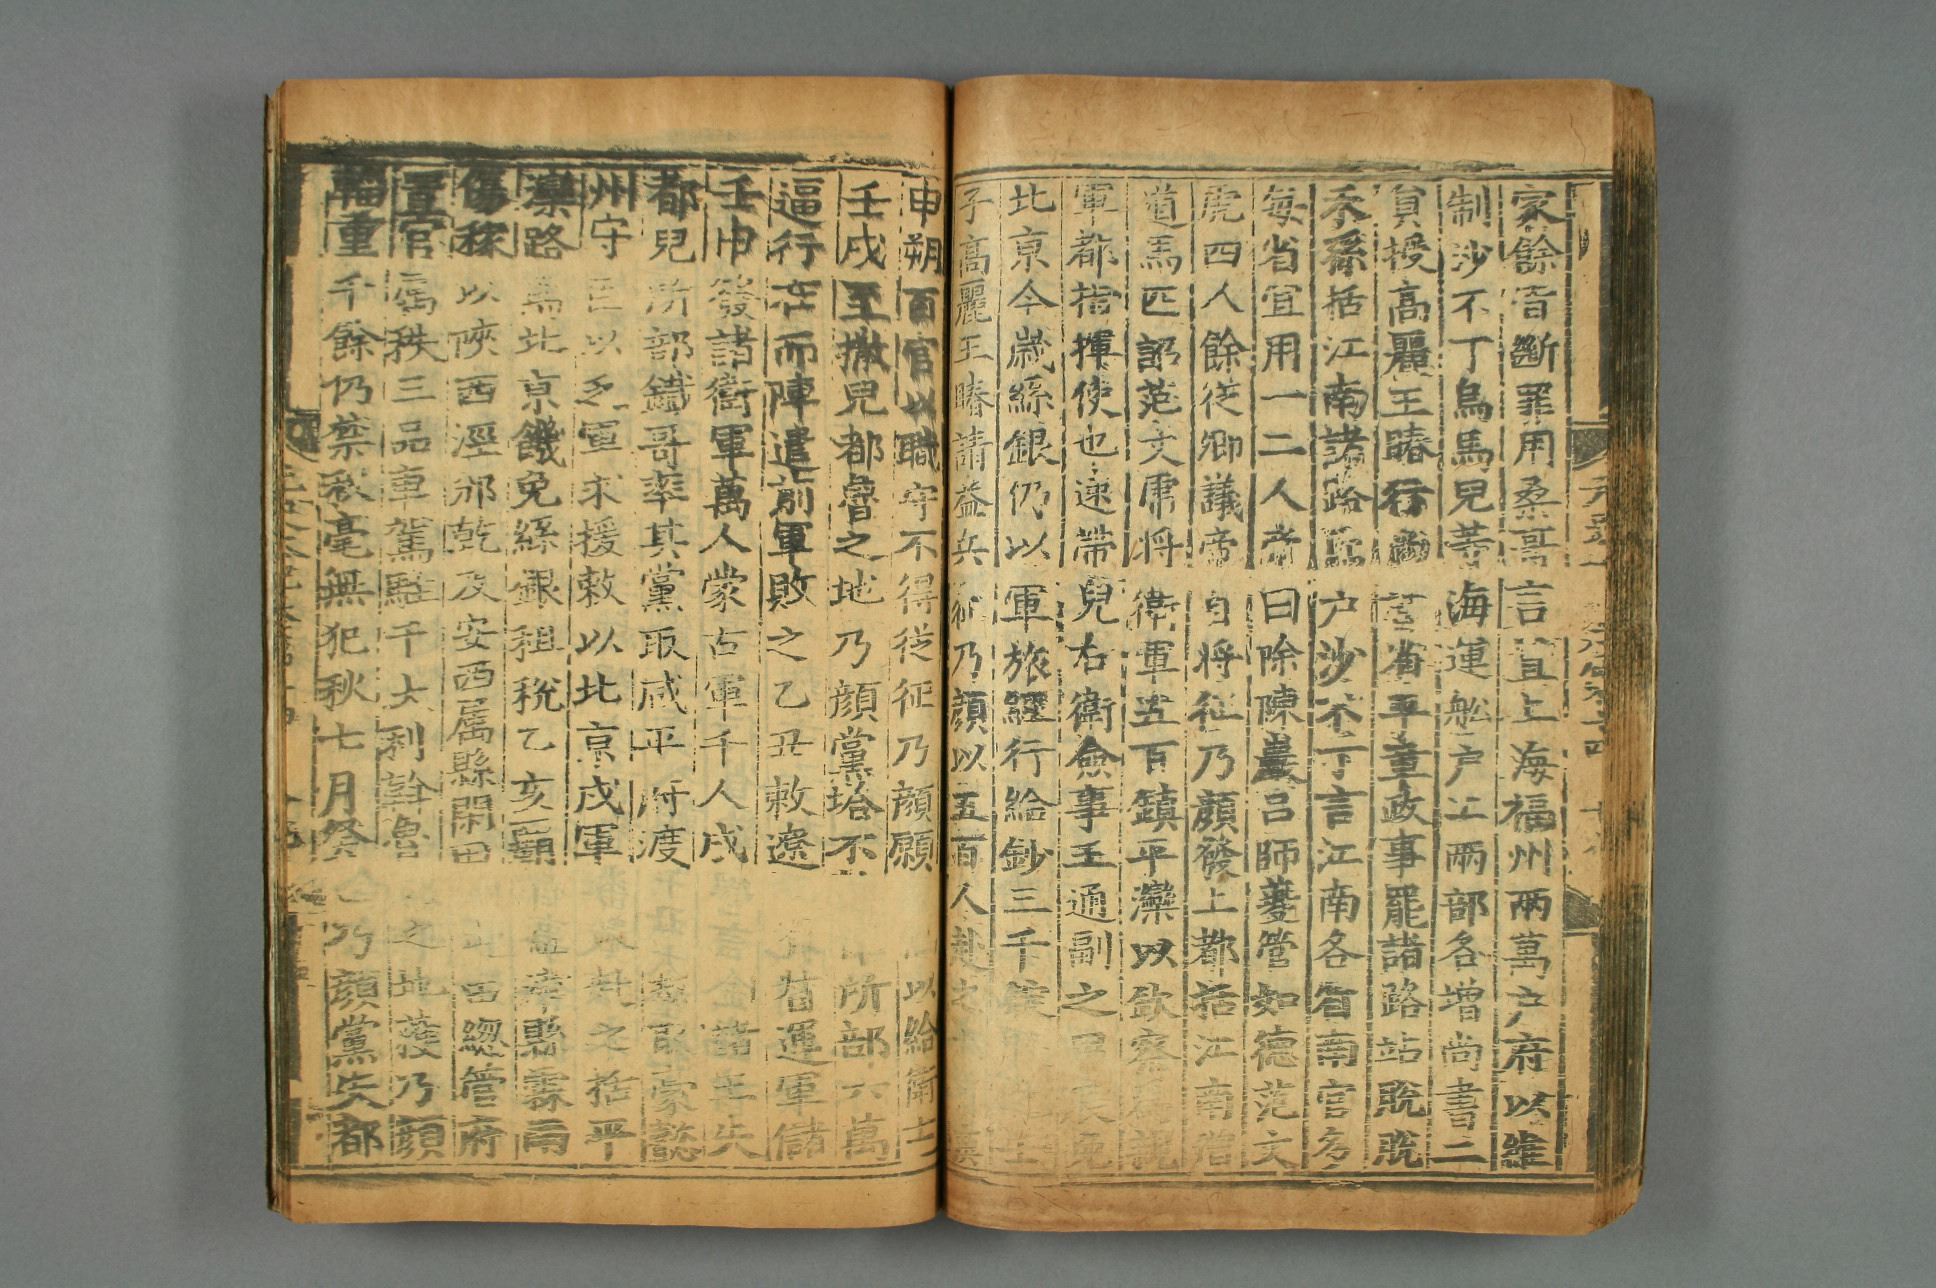 家餘皆斷罪用桑哥言置上海福州兩萬户府以維
制沙不丁烏馬兒等海運船户工兩部各增尚書二
員授高麗王睶行尚書省平章政事罷諸路站脫脫
禾孫括江南諸路匠户沙不丁言江南各省南官多
每省宜用一二人帝曰除陳巖吕師夔管如德范文
虎四人餘從卿議帝自將征乃顏發上都括江南僧
道馬匹詔范文虎將衛軍五百鎮平灤以欽察為親
軍都指揮使也速帶兒右衛僉事王通副之甲辰免
北京今歲絲銀仍以軍旅經行給鈔三千錠
子高麗王睶請益兵征乃顏以五百人赴之
申朔百官以職守不得從征乃顏願以給衛士
壬戌至撒兒都魯之地乃顏黨塔不所部六萬
逼行在而陣遣前軍敗之乙丑敕遼督運軍儲
壬申發諸衛軍萬人蒙古軍千人戍諸王失
都兒所部鐵哥率其黨取咸平府渡豪懿
州守臣以乏軍求援敕以北京戍軍赴之括平
灤路馬北京饑免絲銀租稅乙亥霸益津縣霖雨
傷稼以陝西涇邠乾及安西屬縣閑田總管府
置官屬秩三品車駕駐干大利斡魯之地獲乃顏
輜重千餘仍禁秋毫無犯秋七月癸乃顏黨失都